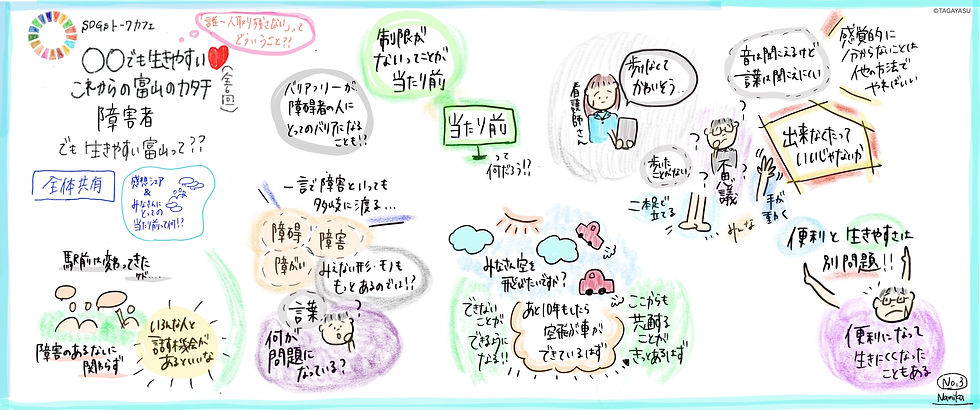 ©TAGAYASU
SDGsトークカフェ
「誰一人取り残さない」って
どういうこと?!
〇〇でも生きやすい
これからの富山のカタチ
(全5回)
障害者
でも生きやすい富山って??
全体共有
感想シェア
&
みなさんに
とっての
当たり前って何!?
駅前は変わってきた
けど…
障害のあるないに
関わらず
いろんな人と
話す機会が
あるといいな
バリアフリーが
障碍者の人に
とってのバリアになる
ことも!?
制限が
ないってことが
当たり前
当たり前
って
何だろう!?
一言で障害といっても
多岐に渡る…
障碍
障害
障がい
みえない形・モノも
もっとあるのでは!?
言葉
何が
問題に
なっている?
看護師さん
歩けなくて
かわいそう…
歩いた
ことがない
二本足で
立てる
不思議
手が
動く
みんな
音は聞こえるけど
言葉は聞こえにくい
感覚的に
分からないことは
他の方法で
やればいい
出来なくたって
いいじゃないか
みなさん空を
飛びたいですか?
できない
ことが
できるように
なる!!
あと10年もしたら
空飛ぶ車が
できているはず
ここからも
共創する
ことが
きっとあるはず
便利と生きやすさは
別問題!!
便利になって
生きにくくなった
こともある
No.3
Namika